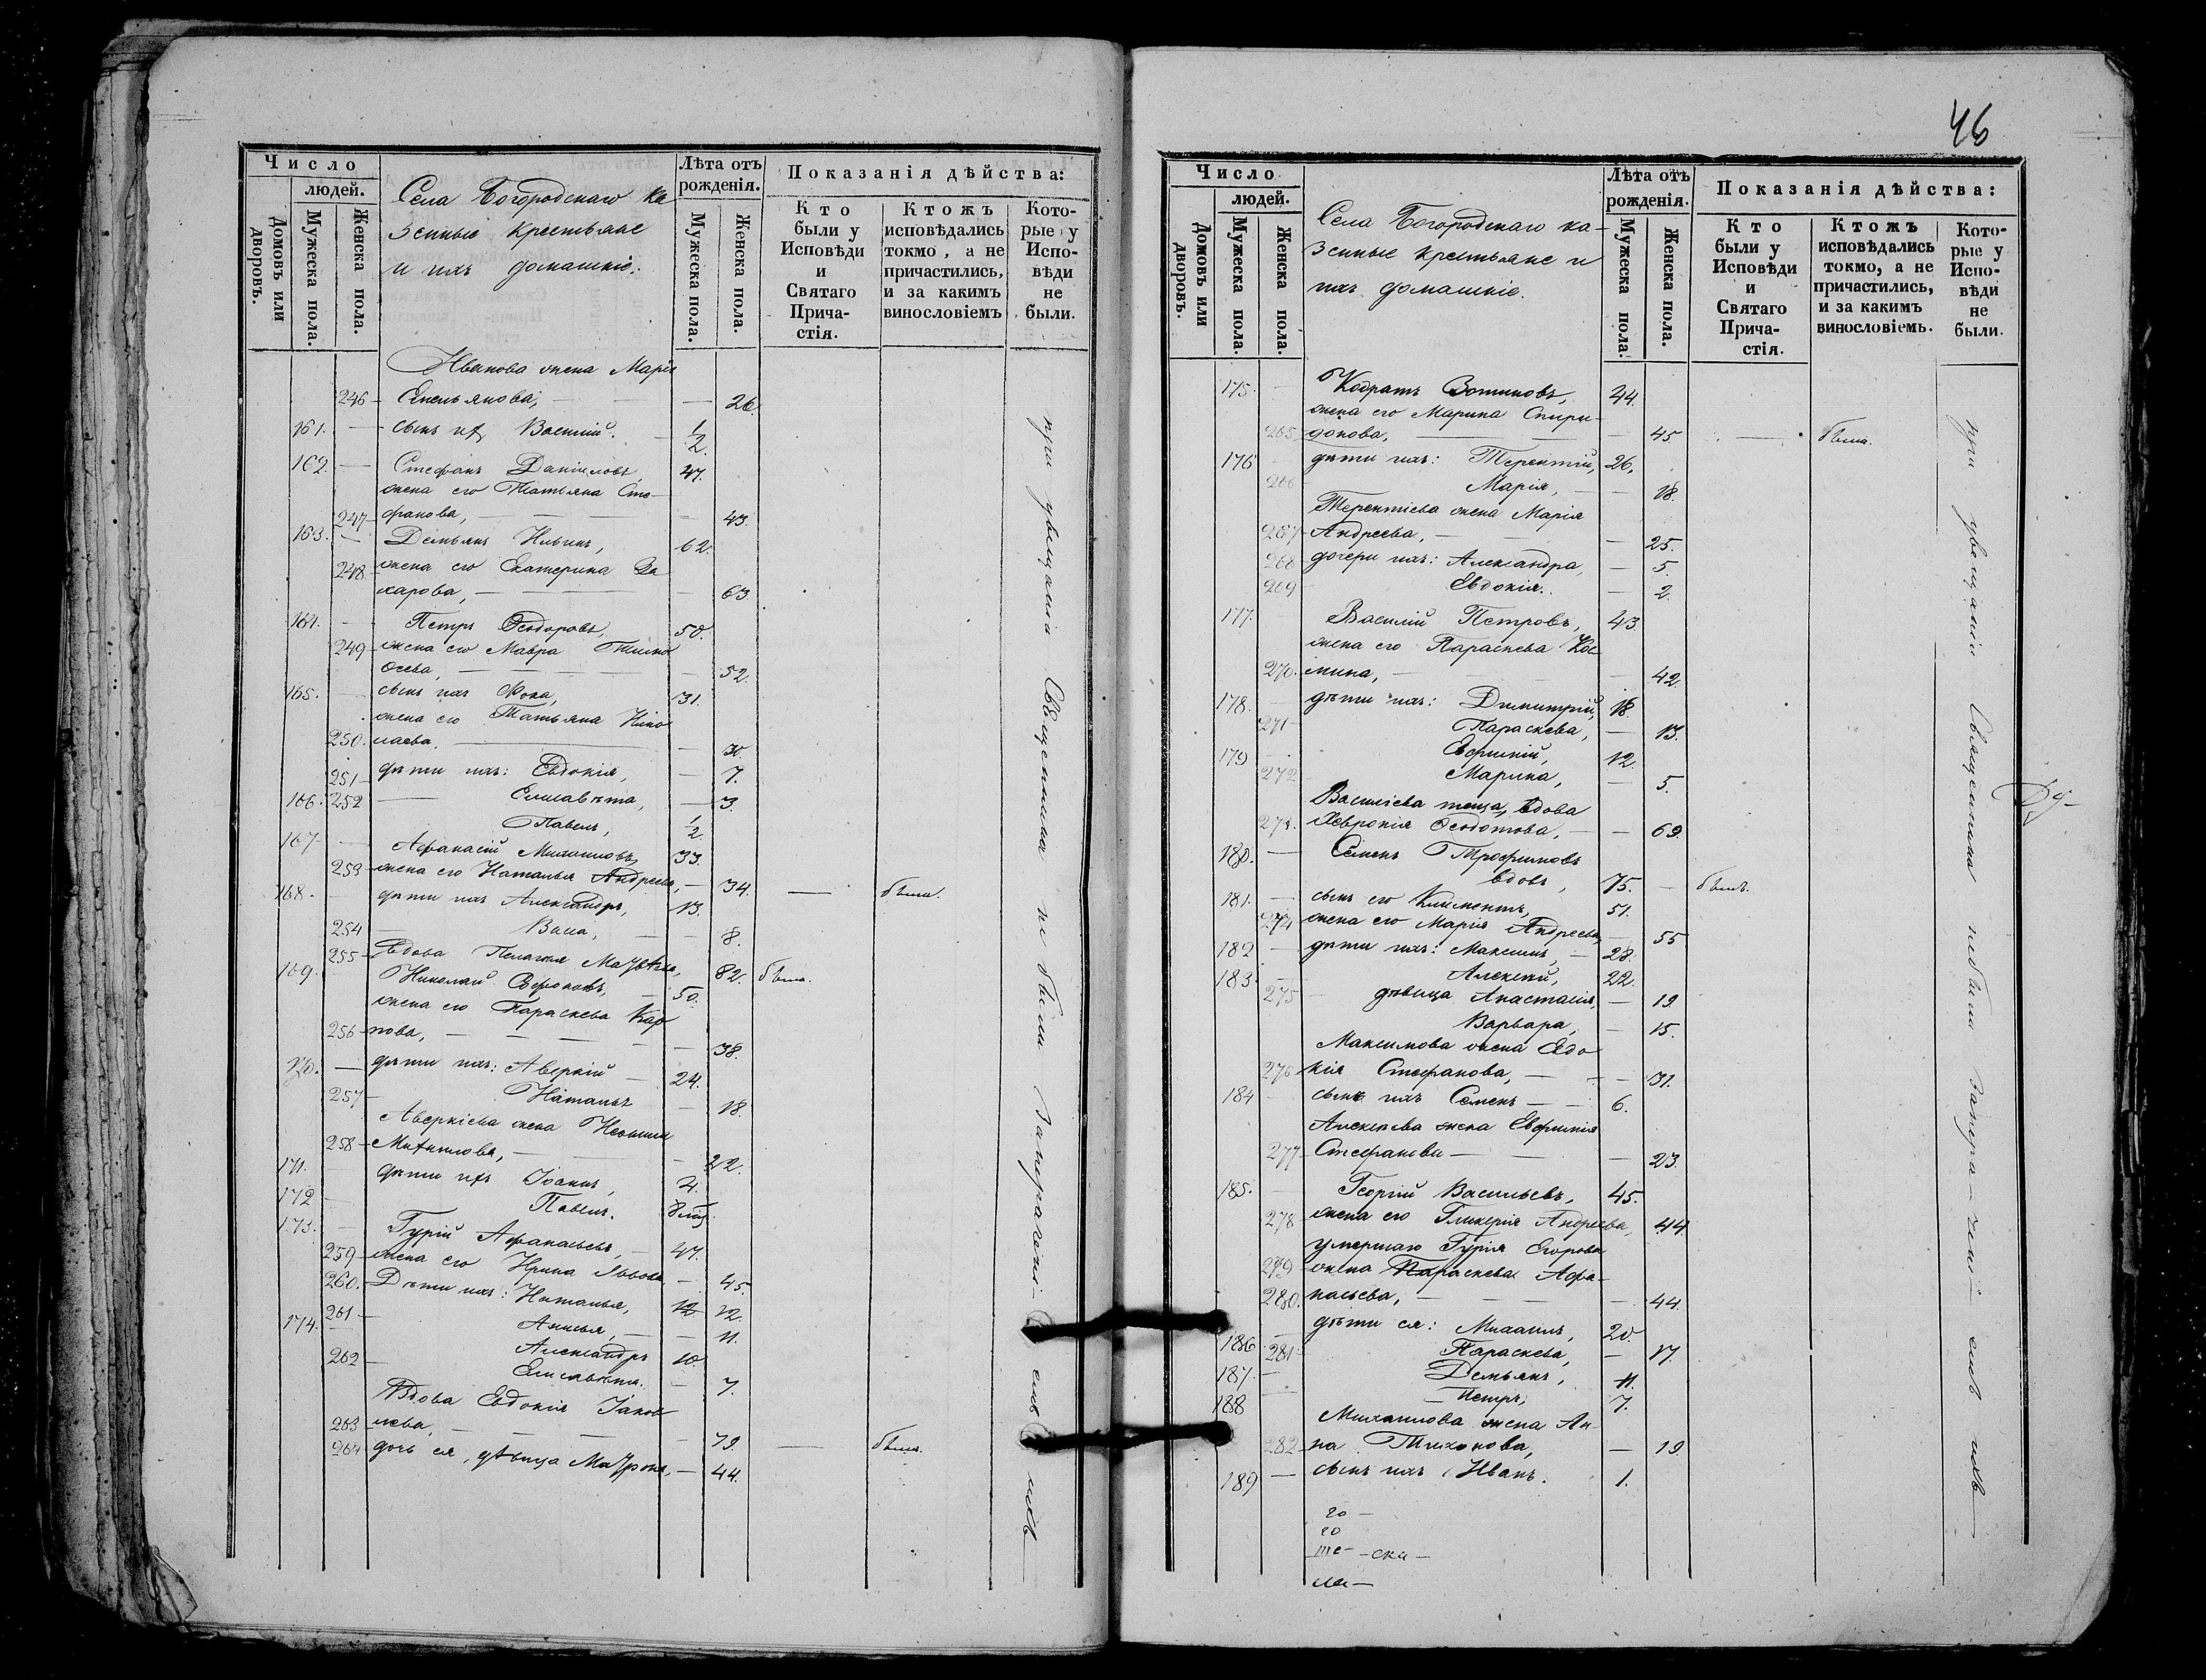 Число
людей.
Домовъ или дворовъ.
Мужеска пола.
Женска пола.
Села Богородскаго ка
зенные крестьяне
и ихъ домашніе.
Лѣта отъ рожденія.
Мужеска пола.
Женска пола.
Показанія дѣйства:
Кто были у Исповѣди и Святаго Прича-стія.
Ктожъ исповѣдались токмо, а не причастились, и за какимъ винословіемъ
Кото-рые у Испо-вѣди не были.
Иванова жена Марія
246 Емельянова, 26.
161. сынъ их Василій. 1/2
162. Стефанъ Даніиловъ 47.
жена его Татьяна Сте-
247 фанова, 43.
163. Демьянъ Ильинъ, 62.
248 жена его Екатерина За
харова, 63.
164. Петръ Ѳеодоровъ, 50.
249 жена его Мавра Тимо
ѳеева, 52.
165. сынъ ихъ Фока, 31.
жена его Татьяна Нико
250. лаева, 30.
251 дѣти ихъ: Евдокія, 7.
166. 252 Елисавета, 3.
Павелъ, 1/2
167. Аѳанасій Михаиловъ, 33.
253 жена его Наталья Андреева, 34. была.
168. дѣти ихъ Александръ, 13.
254 Васса, 8.
255 Вдова Пелагія Матвѣева, 82. была.
169. Николай 50.
жена его Параскева Кар
256 пова, 38.
170. дѣти ихъ: Аверкій 24.
257 Наталья 18.
Аверкіева жена Неонила
258 Михаилова, 22.
171. дѣти ихъ Іоаннъ, 4.
172 Павелъ.
173. Гурій Аѳанасьевъ, 47.
259 жена его Ирина Львова 45.
260. Дѣти ихъ: Наталья, 12 12.
261 Анисья, 11.
174. Александръ 10.
262 Елисавета. 7.
Вдова Евдокія Іаков
263 лева, 79. была.
264 дочь ея, дѣвица Матрона, 44.
при увѣщаніи Священника не были
46
Число
людей.
Домовъ или дворовъ.
Мужеска пола.
Женска пола.
Села Богородскаго ка-
зенные крестьяне и
ихъ домашніе.
Лѣта отъ рожденія.
Мужеска пола.
Женска пола.
Показанія дѣйства:
Кто были у Исповѣди и Святаго Прича-стія.
Ктожъ исповѣдались токмо, а не причастились, и за какимъ винословіемъ.
Кото-рые у Испо-вѣди не были.
175. Кодратъ Зотиковъ, 44.
жена его Марина Спири-
265 донова, 45 была.
176 дѣти ихъ: Терентій, 26.
266 Марія, 18.
Терентіева жена Марія
267 Андреева, 25.
268 дочери ихъ: Александра, 5.
269 Евдокія. 2.
177. Василій Петровъ, 43.
жена его Параскева Кос
270. мина, 42.
178. дѣти ихъ: Димитрій, 18.
271 Параскева, 13.
179 Евфимій, 12.
272 Марина, 5.
Василіева теща, вдова
273. Хевронія Ѳеодотова, 69.
180. Семенъ Трофимовъ
вдовъ, 75. былъ.
181. сынъ его Климентъ, 51.
274 жена его Марія Андреева, 55
182 дѣти ихъ: Максимъ, 28.
183. Алексѣй, 22.
275 дѣвица Анастасія, 19
Варвара, 15.
Максимова жена Евдо
276 кія Стефанова, 31.
184 сынъ ихъ Семенъ 6.
Алексѣева жена Евфимія
277 Стефанова 23.
185. Георгій Васильевъ, 45.
278 жена его Гликерія Андреева, 44.
умершаго Гурія Егорова
279 жена Параскева Аѳа-
280. насьева, 44.
дѣти ея: Михаилъ, 20.
186 281 Параскева, 17.
187. Демьянъ, 11.
188 Петръ, 7.
Михаилова жена Ан-
282 на Тихонова, 19.
189 сынъ ихъ Иванъ. 1.
го
го
ска
при увѣщаніи Священника не были